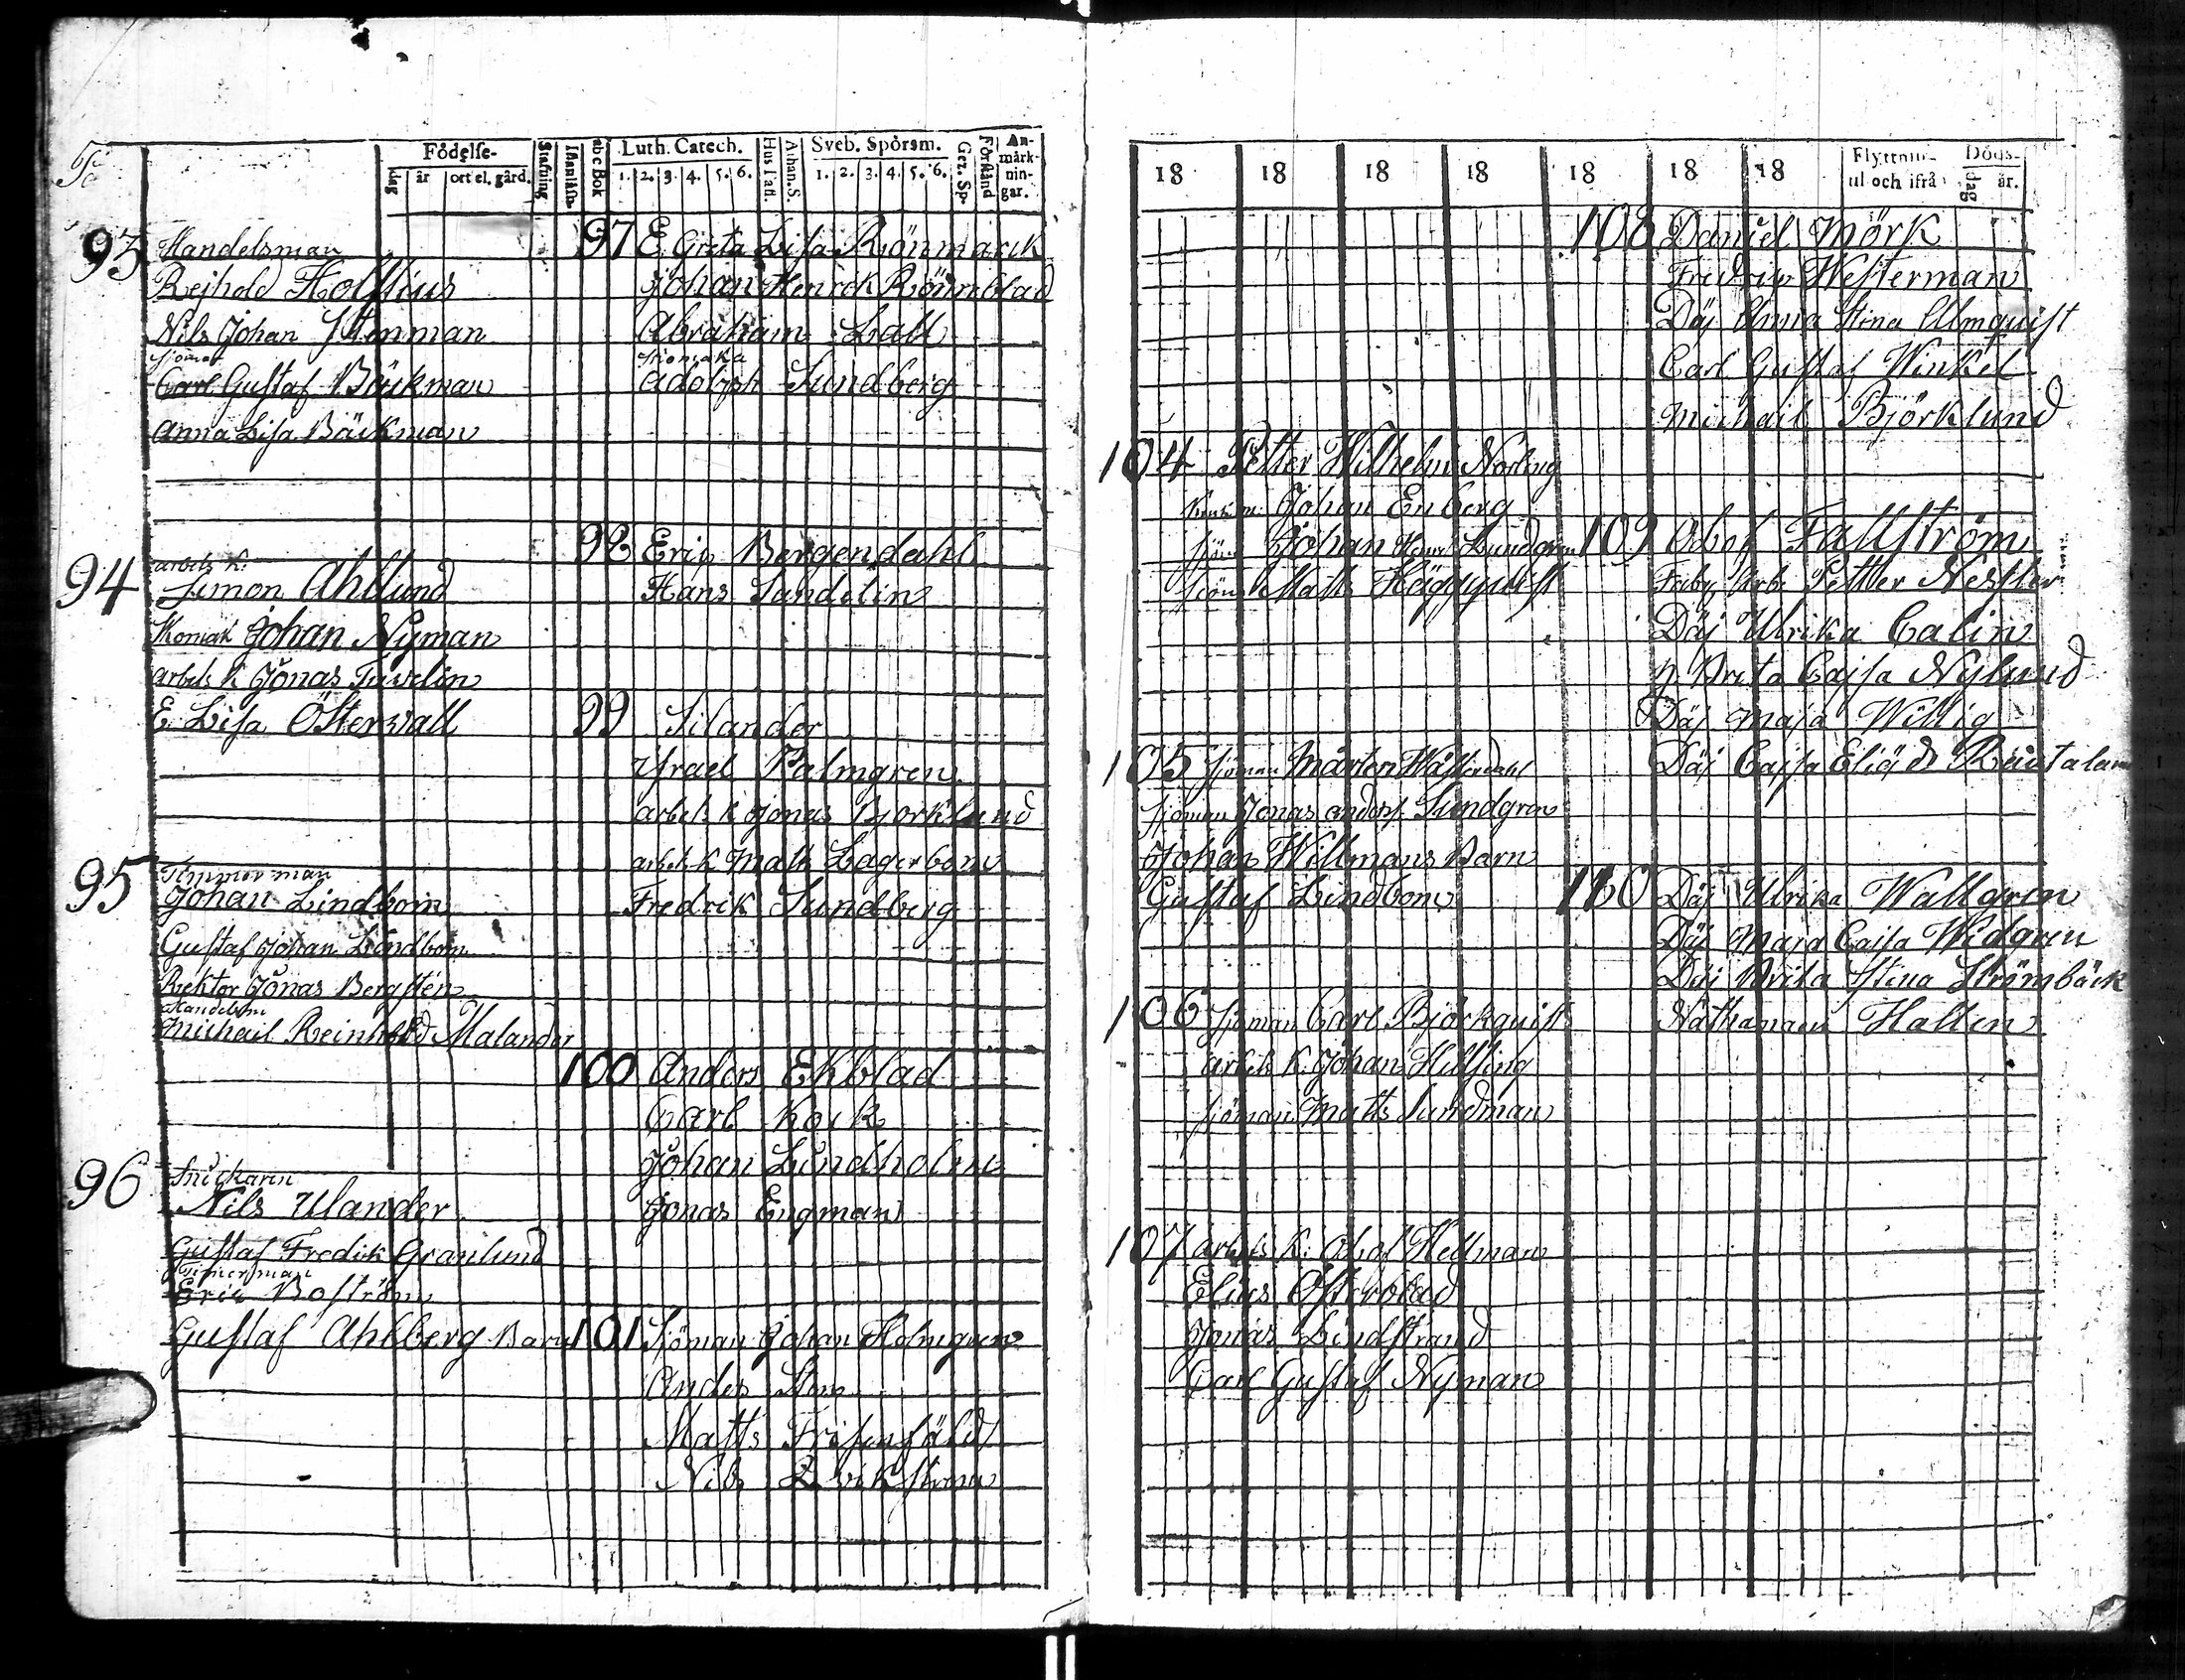 Födelse-
dag
år
ort el. gård.
Stafning
Innanläsn.
abc Bok
Luth. Catech.
1. 2. 3. 4. 5. 6.
Hus Tafl.
Athan. S.
Sveb. Spörsm.
1. 2. 3. 4. 5. 6.
Gez. Sp.
Förstånd
An-
märk-
nin-
gar.
93 Handelsman
Rejhold Holstius
Nils Johan Stenman
Sjöman
Carl Gustaf Bäckman
Anna Lisa Bäckman
94 arbets k.
Simon Ahllund
Skomak Johan Nyman
arbets k Jonas
E. Lisa Östervall
95 Timmerman
Johan Lindbom
Gustaf Johan Lindbom
Rektor Jonas Bergstén
Handelsm
Michael Reinhold Malander
96 Snickaren
Nils Ulander
Gustaf Fredik Granlund
Timerman
Eric Boström
Gustaf Ahlberg Barn
97 E. Greta Lisa Rönmarck
Johan Henrik Rönnblad
Abraham Lall
Skomaka
Adolph Sundberg
98 Eric Bergendahl
Hans Sandelin
99 Silander
Israel Palmgren
arbets k Jonas Björklund
arbets k Matts Lagerbom
Fredrik Sundberg
100 Anders Ekblad
Carl Kock
Johan Lundholm
Jonas Engman
101 Sjöman Johan Holmgren
Anders Sten
Matts Frisenfäldt
Nils Qvikström
18 18 18 18 18 18 18
Flyttnin-
til och ifrån
Döds-
dag
år.
104 Petter Wilhelm Norling
Johan Enberg
Sjöm Johan Henr Lundgren
Sjöm Matts Häggqvist
105 Sjöman Mårten Wästerdahl
Sjöman Jonas Anders. Sundgren
Johan Willmans Barn
Gustaf Lindbom
106 Sjöman Carl Björkquist
arbets k. Johan Hellsing
Sjöman Matts Sundman
107 arbets k. Olof Hellman
Elias Österblad
Jonas Lindstrand
Carl Gustaf Nyman
108 Daniel Mörk
Fredric Westerman
Däj Anna Stina Almquist
Carl Gustaf Winkel
Michail Björklund
109 Olof Fallström
Petter Nesler
Däj Ulrika Calin
Brita Cajsa Nylund
Däj Maja Willig
Däj Cajsa
110 Däj Ulrika Wallgren
Däj Maja Caisa Widgren
Däj Brita Stina Strömbäck
Nathanael Hallin